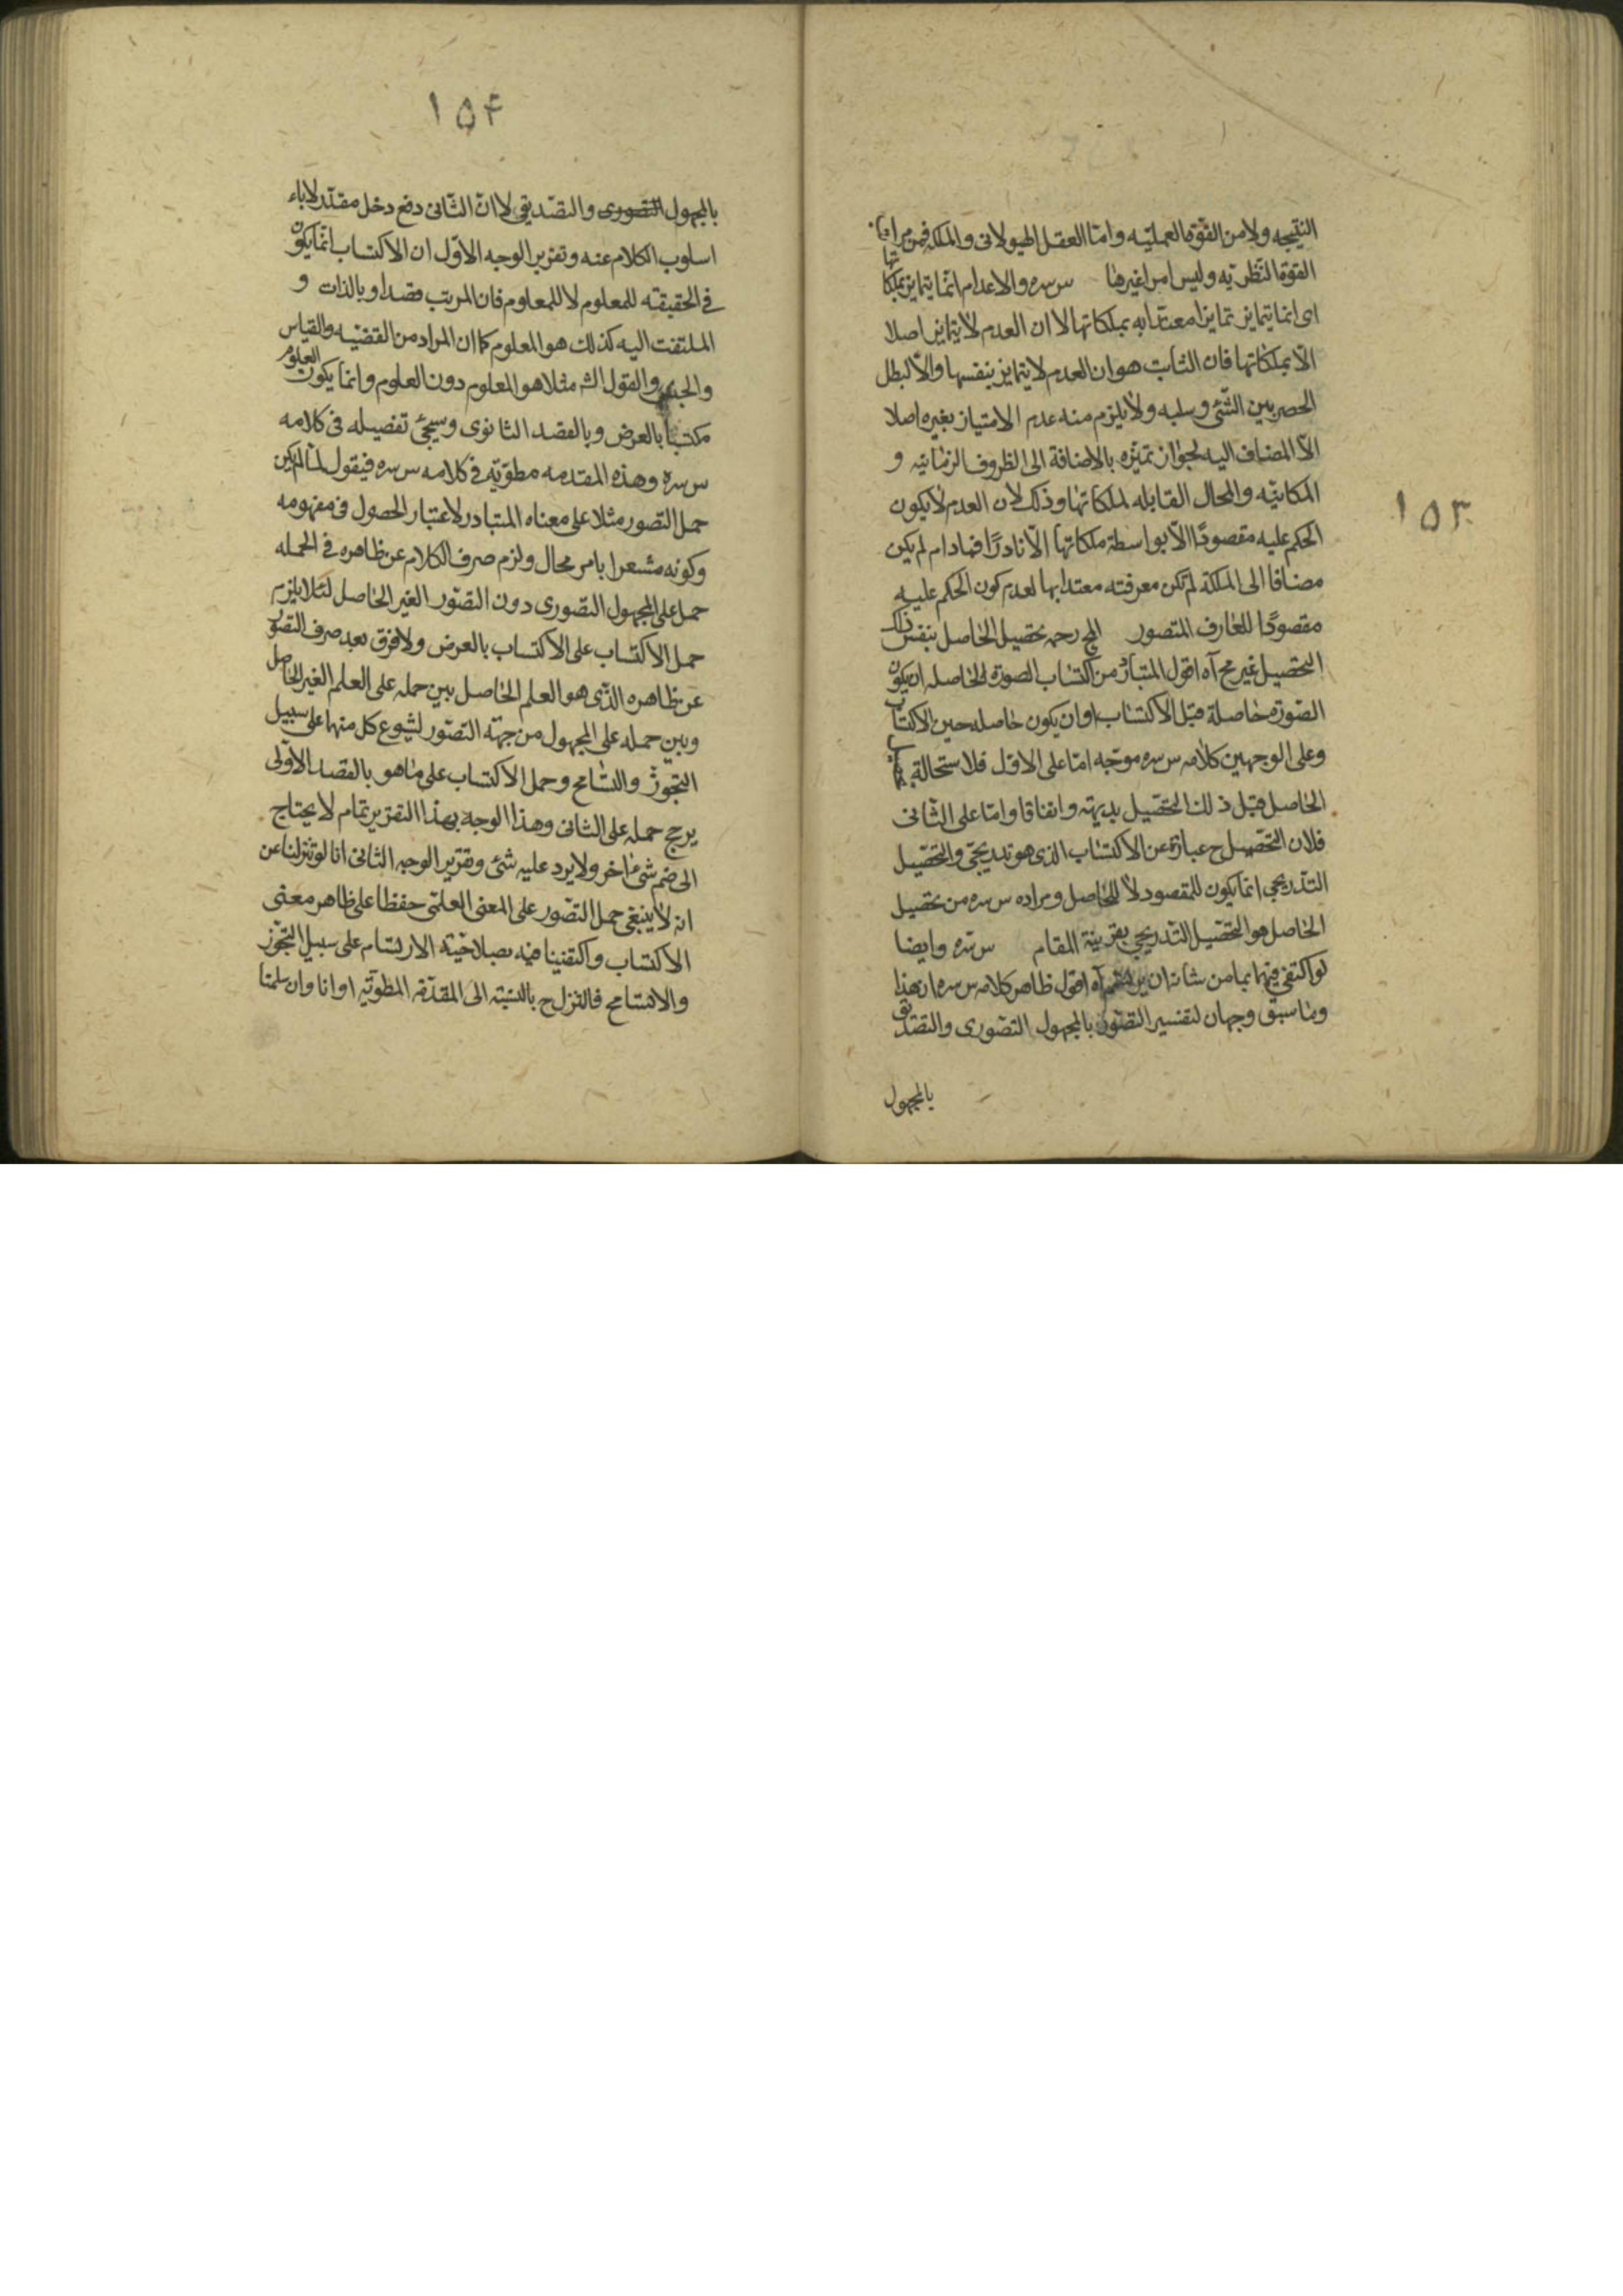 ١٥٣
النتيجه ولا من القوة العمليه واما العقل الهيولانى والملكه فمن مراتب
القوة النظريه وليس امرا غيرها س سره والاعدام انما يتمايز بملكاتها
اى انما يتمايز تمايزا معتدا به بملكاتها لا ان العدم لا يتمايز اصلا
الا بملكاتها فان الثابت هو ان العدم لا يتمايز بنفسها والا لبطل
الحصر بين الشئ وسلبه ولا يلزم منه عدم الامتياز بغيره اصلا
الا المضاف اليه لجواز تميزه بالاضافة الى الظروف الزمانيه و
المكانيه والمحال القابله لملكاتها وذلك لان العدم لا يكون
الحكم عليه مقصودا الا بواسطة ملكاتها الا نادرا فمادام لم يكن
مضافا الى الملكة لم تكن معرفته معتدا بها لعدم كون الحكم عليه
مقصودا للعارف المتصور رحمه تحصيل الحاصل بنفس ذلك
التحصيل غير مح آه اقول المتبادر من اكتساب الصورة الحاصله ان يكون
الصورة حاصلة قبل الاكتساب او ان يكون حاصله حين الاكتساب
وعلى الوجهين كلامه س سره موجه اما على الاول فلاستحالة
الحاصل قبل ذلك التحصيل بديهة واتفاقا واما على الثانى
فلان التحصيل ح عبارة عن الاكتساب الذى هو تدريجى والتحصيل
التدريجى انما يكون للمقصود لا للحاصل ومراده س سره من تحصيل
الحاصل هو التحصيل التدريجى بقرينة المقام س سره وايضا
لو اكتفى فيهما بما من شانه ان آه اقول ظاهر كلامه س سره ان هذا
وما سبق وجهان لتفسير التصور بالمجهول التصورى والتصديق
بالمجهول
١٥۴
بالمجهول التصورى والتصديقى لا ان الثانى دفع دخل مقدر لاباء
اسلوب الكلام عنه وتقرير الوجه الاول ان الاكتساب انما يكون
فى الحقيقه للمعلوم لا للمعلوم فان المرتب قصدا و بالذات و
الملتفت اليه كذلك هو المعلوم كما ان المراد من القضيه والقياس
والقول الش مثلا هو المعلوم دون العلوم وانما يكون العلوم
مكتسبا بالعرض وبالقصد الثانوى وسيجئ تفصيله فى كلامه
س سره وهذه المقدمه مطويه فى كلامه س سره فيقول لما لم يكن
حمل التصور مثلا على معناه المتبادر لاعتبار الحصول فى مفهومه
وكونه مشعرا بامر محال ولزم صرف الكلام عن ظاهره فى الجمله
حمل على المجهول التصورى دون التصور الغير الحاصل لئلا يلزم
حمل الاكتساب على الاكتساب بالعرض ولا فرق بعد صرف التصور
عن ظاهره الذى هو العلم الحاصل بين حمله على العلم الغير الحاصل
وبين حمله على المجهول من جهة التصور لشيوع كل منهما على سبيل
التجوز والتسامح وحمل الاكتساب على ما هو بالقصد الاولى
يرجح حمله على الثانى وهذا الوجه بهذا التقرير تمام لا يحتاج
الى ضم شئ اخر ولا يرد عليه شئ وتقرير الوجه الثانى انا لو تنزلنا عن
انه لا ينبغى حمل التصور على المعنى العلمى حفظا على ظاهر معنى
الاكتساب واكتفينا فيه بصلاحية الارتسام على سبيل التجوز
والتسامح فالتنزل ح بالنسبة الى المقدمه المطويه او انا وان سلمنا